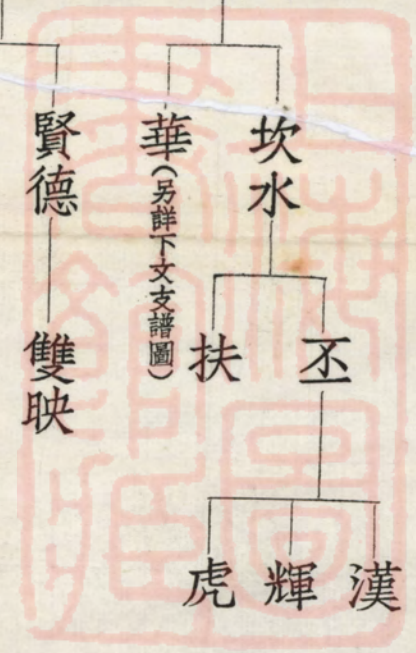 坎水
丕
扶
漢
輝
虎
華(另詳下文支譜圖)
賢德
雙映